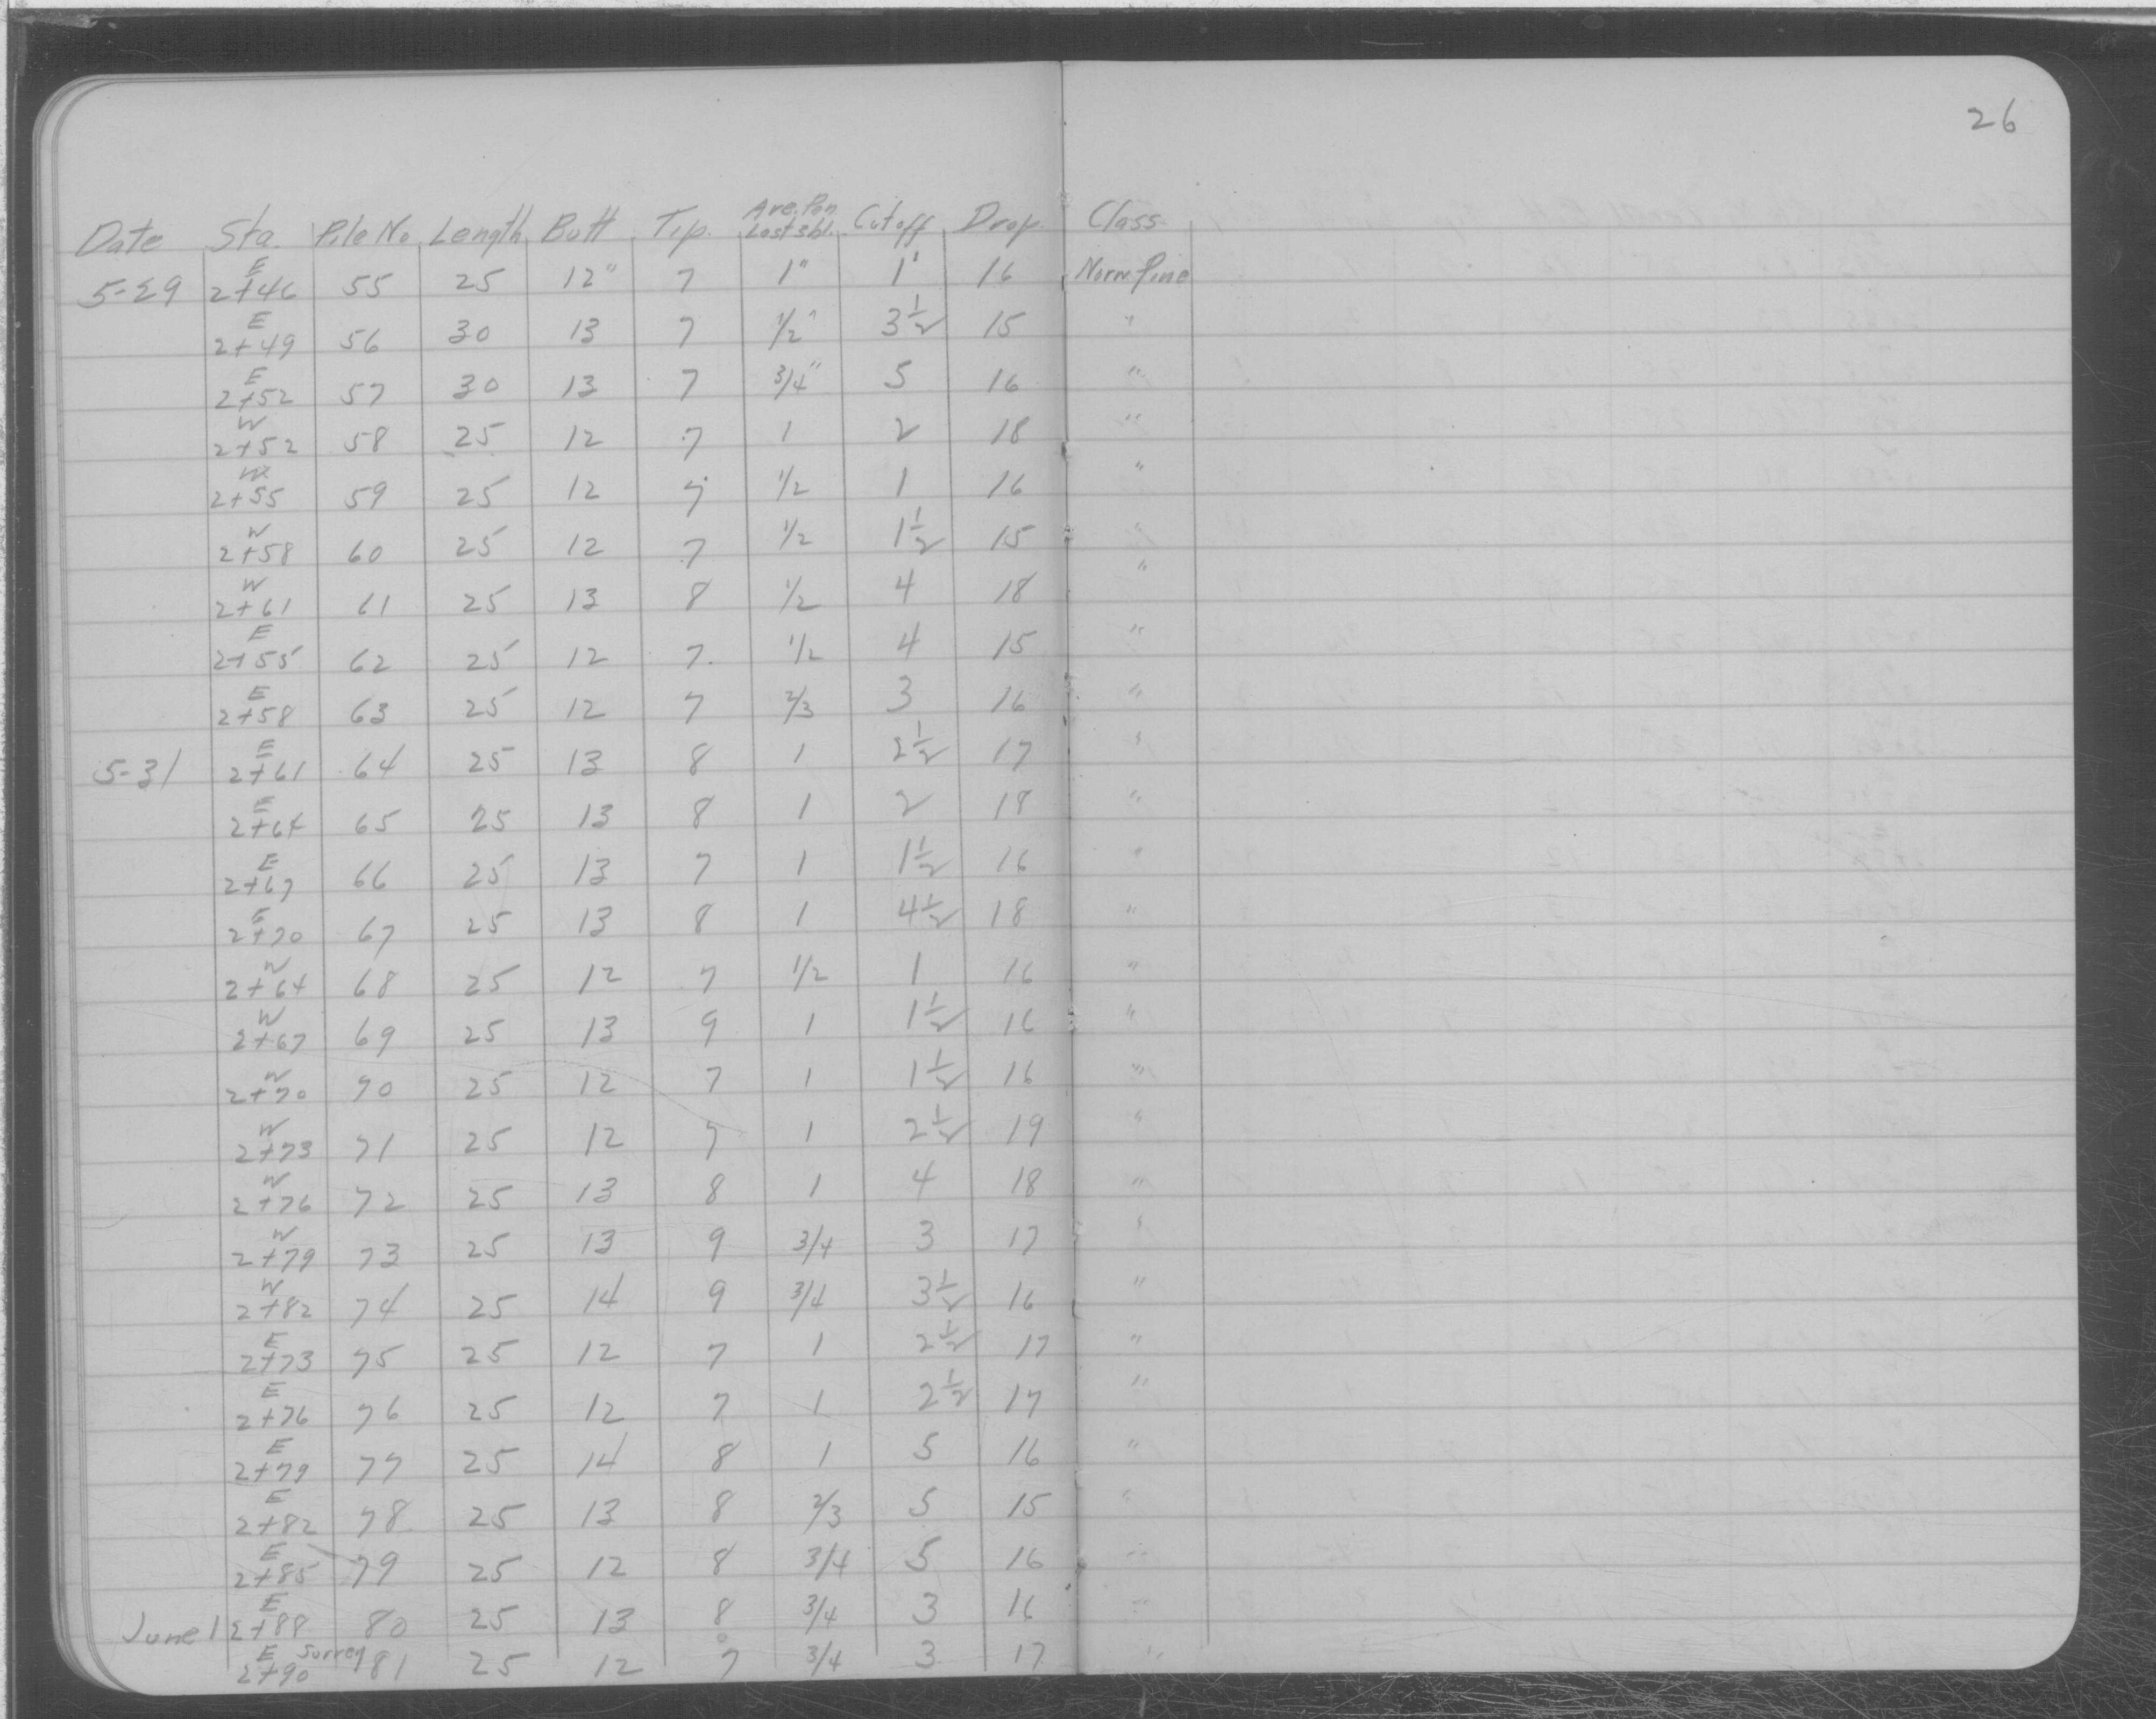 26
Date Sta. Pile No. Length Butt Tip. Ave. Pen. Last 3 bl. Cutoff Drop Class
5-29 E 2+46 55 25 12" 7 1" 1' 16 Norw Pine
E 2+49 56 30 13 7 1/2" 3 1/2 15 "
E 2+52 57 30 13 7 3/4" 5 16 "
W 2+52 58 25 12 7 1 2 18 "
W 2+55 59 25 12 7 1/2 1 16 "
W 2+58 60 25 12 7 1/2 1 1/2 15 "
W 2+61 61 25 13 8 1/2 4 18 "
E 2+55 62 25 12 7. 1/2 4 15 "
E 2+58 63 25 12 7 2/3 3 16 "
5-31 E 2+61 64 25 13 8 1 2 1/2 17 "
E 2+64 65 25 13 8 1 2 18 "
E 2+67 66 25 13 7 1 1 1/2 16 "
E 2+70 67 25 13 8 1 4 1/2 18 "
W 2+64 68 25 12 7 1/2 1 16 "
W 2+67 69 25 13 9 1 1 1/2 16 "
W 2+70 70 25 12 7 1 1 1/2 16 "
W 2+73 71 25 12 7 1 2 1/2 19 "
W 2+76 72 25 13 8 1 4 18 "
W 2+79 73 25 13 9 3/4 3 17 "
W 2+82 74 25 14 9 3/4 3 1/2 16 "
E 2+73 75 25 12 7 1 2 1/2 17 "
E 2+76 76 25 12 7 1 2 1/2 17 "
E 2+79 77 25 14 8 1 5 16 "
E 2+82 78 25 13 8 2/3 5 15 "
E 2+85 79 25 12 8 3/4 5 16 "
June 1 E 2+88 80 25 13 8 3/4 3 16 "
E 2+90 81 25 12 7 3/4 3 17 "